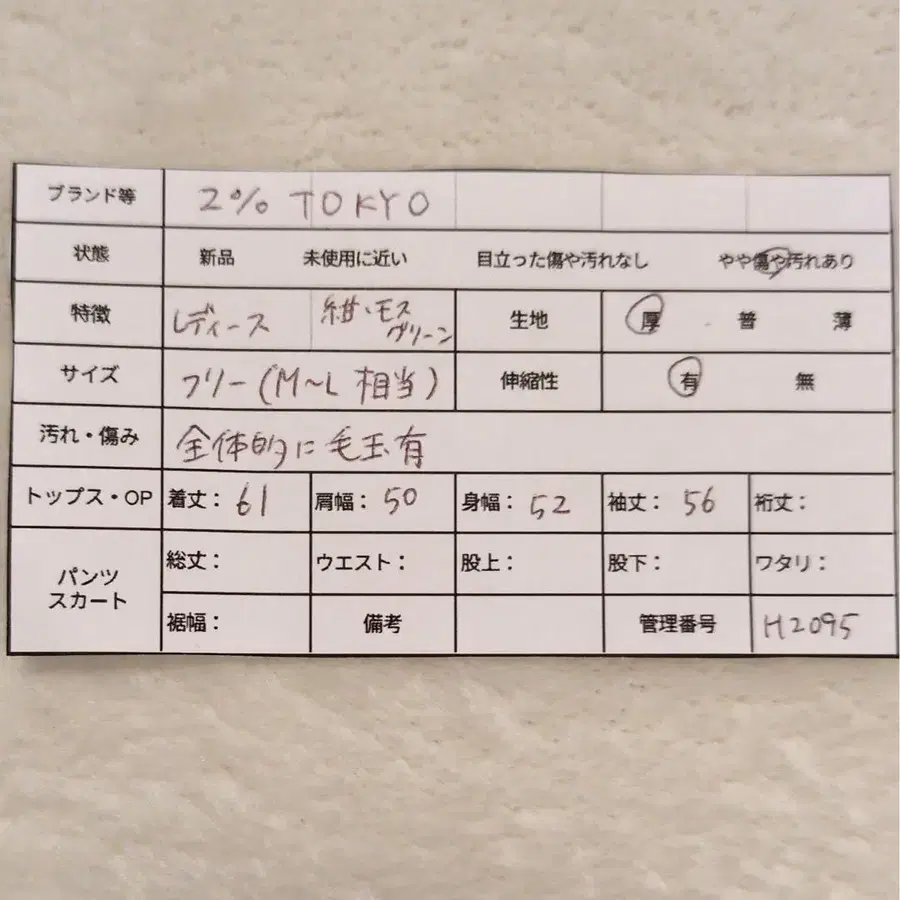 ブランド等 2% TOKYO
状態 新品 未使用に近い 目立った傷や汚れなし やや傷や汚れあり
特徴 レディース 紺・モスグリーン 生地 厚 普 薄
サイズ フリー(M~L 相当) 伸縮性 有 無
汚れ・傷み 全体的に毛玉有
トップス・OP 着丈: 61 肩幅: 50 身幅: 52 袖丈: 56 裄丈:
パンツ スカート 総丈: ウエスト: 股上: 股下: ワタリ:
裾幅: 備考 管理番号 H2095